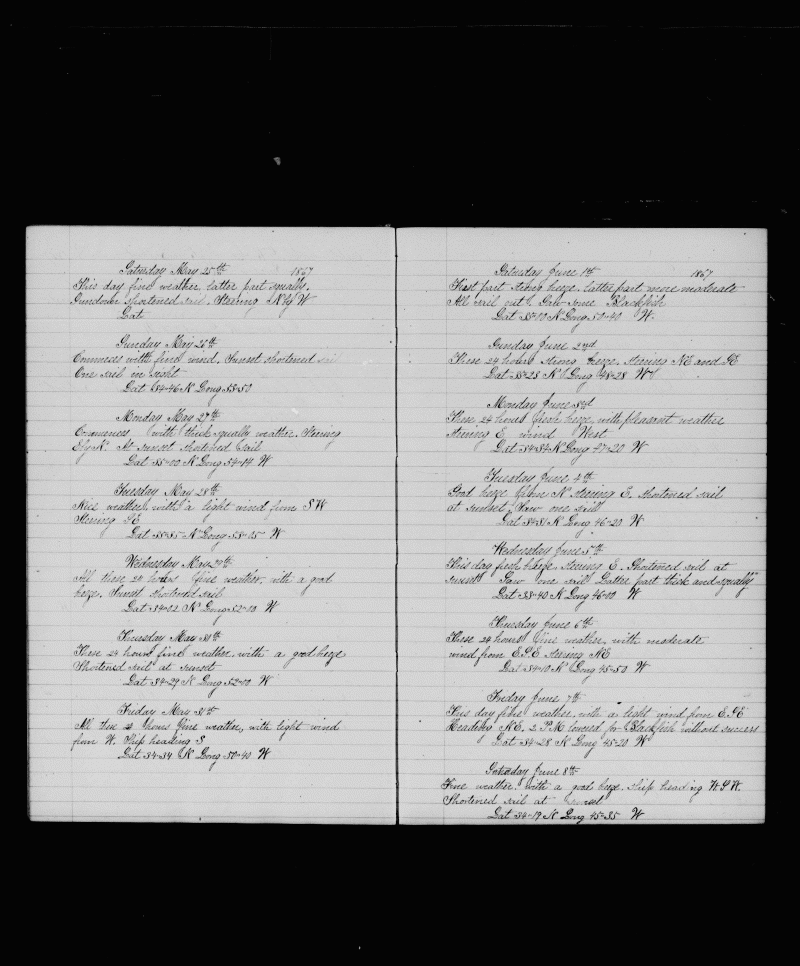 Saturday May 25th 1867
This day fine weather, latter part squally.
Sundown shortened sail. Steering N by W
Lat
Sunday May 26th
Commences with fine wind. Sunset shortened sail
One sail in sight
Lat 34-46 N Long 55-50
Monday May 27th
Commences with thick squally weather. Steering
E by N. At sunset shortened sail
Lat 35-00 N Long 54-14 W
Tuesday May 28th
Nice weather, with a light wind from SW
Steering SE
Lat 35-35 N Long 53-05 W
Wednesday May 29th
All these 24 hours fine weather, with a good
breeze. Sunset shortened sail
Lat 34-02 N Long 52-10 W
Thursday May 30th
These 24 hours fine weather, with a good breeze
Shortened sail at sunset
Lat 34-29 N Long 52-00 W
Friday May 31st
All these 24 hours fine weather, with light wind
from W. Ship heading S
Lat 34-34 N Long 50-40 W
Saturday June 1st 1867
First part strong breeze. latter part more moderate
All sail out. Saw some Blackfish
Lat 33-10 N Long 50-40 W.
Sunday June 2nd
These 24 hours strong breeze. steering NE and SE
Lat 33-28 N Long 48-28 W
Monday June 3rd
These 24 hours fresh breeze, with pleasant weather
steering E wind West
Lat 34-34 N Long 47-20 W
Tuesday June 4th
Good breeze from N steering E. shortened sail
at sunset, Saw one sail
Lat 34-31 N Long 46-20 W
Wednesday June 5th
This day fresh breeze, steering E. Shortened sail at
sunset Saw one sail Latter part thick and squally
Lat 33-40 N Long 46-10 W
Thursday June 6th
These 24 hours fine weather, with moderate
wind from E.S.E steering NE
Lat 34-10 N Long 45-50 W
Friday June 7th
This day fine weather, with a light wind from E.SE
Heading NE. 2 P.M. lowered for Blackfish without success
Lat 34-28 N Long 45-20 W
Saturday June 8th
Fine weather, with a good breeze. ship heading W.S.W.
Shortened sail at sunset
Lat 34-19 N Long 45-35 W